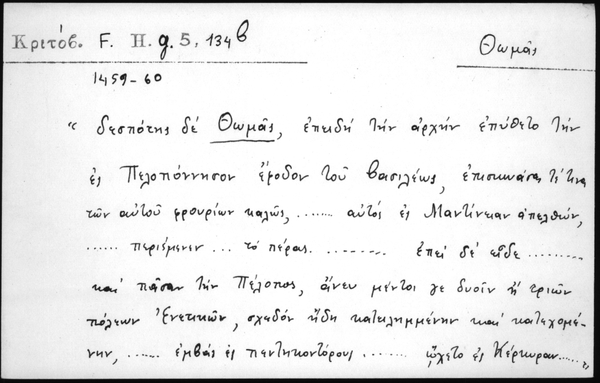 Κριτόβ. F. H. g. 5, 134b
Θωμᾶς
1459-60
“ δεσπότης δέ Θωμᾶς, ἐπειδή τήν ἀρχήν ἐπύθετο τήν
ἐς Πελοπόννησον ἔφοδον τοῦ βασιλέως, ἐπισκευάσας τέ τινα
τῶν αὐτοῦ φρουρίων καλῶς, ....... αὐτός ἐς Μαντίνειαν ἀπελθών,
...... περιέμενεν ... τό πέρας. ........ ἐπεί δέ εἶδε .........
καί πᾶσαν τήν Πέλοπος, ἄνευ μέντοι γε δυοῖν ἤ τριῶν
πόλεων Ἐνετικῶν, σχεδόν ἤδη κατειλημμένην καί κατεχομέ-
νην, ...... ἐμβάς ἐς πεντηκοντόρους ....... ᾤχετο ἐς Κέρκυραν.....”